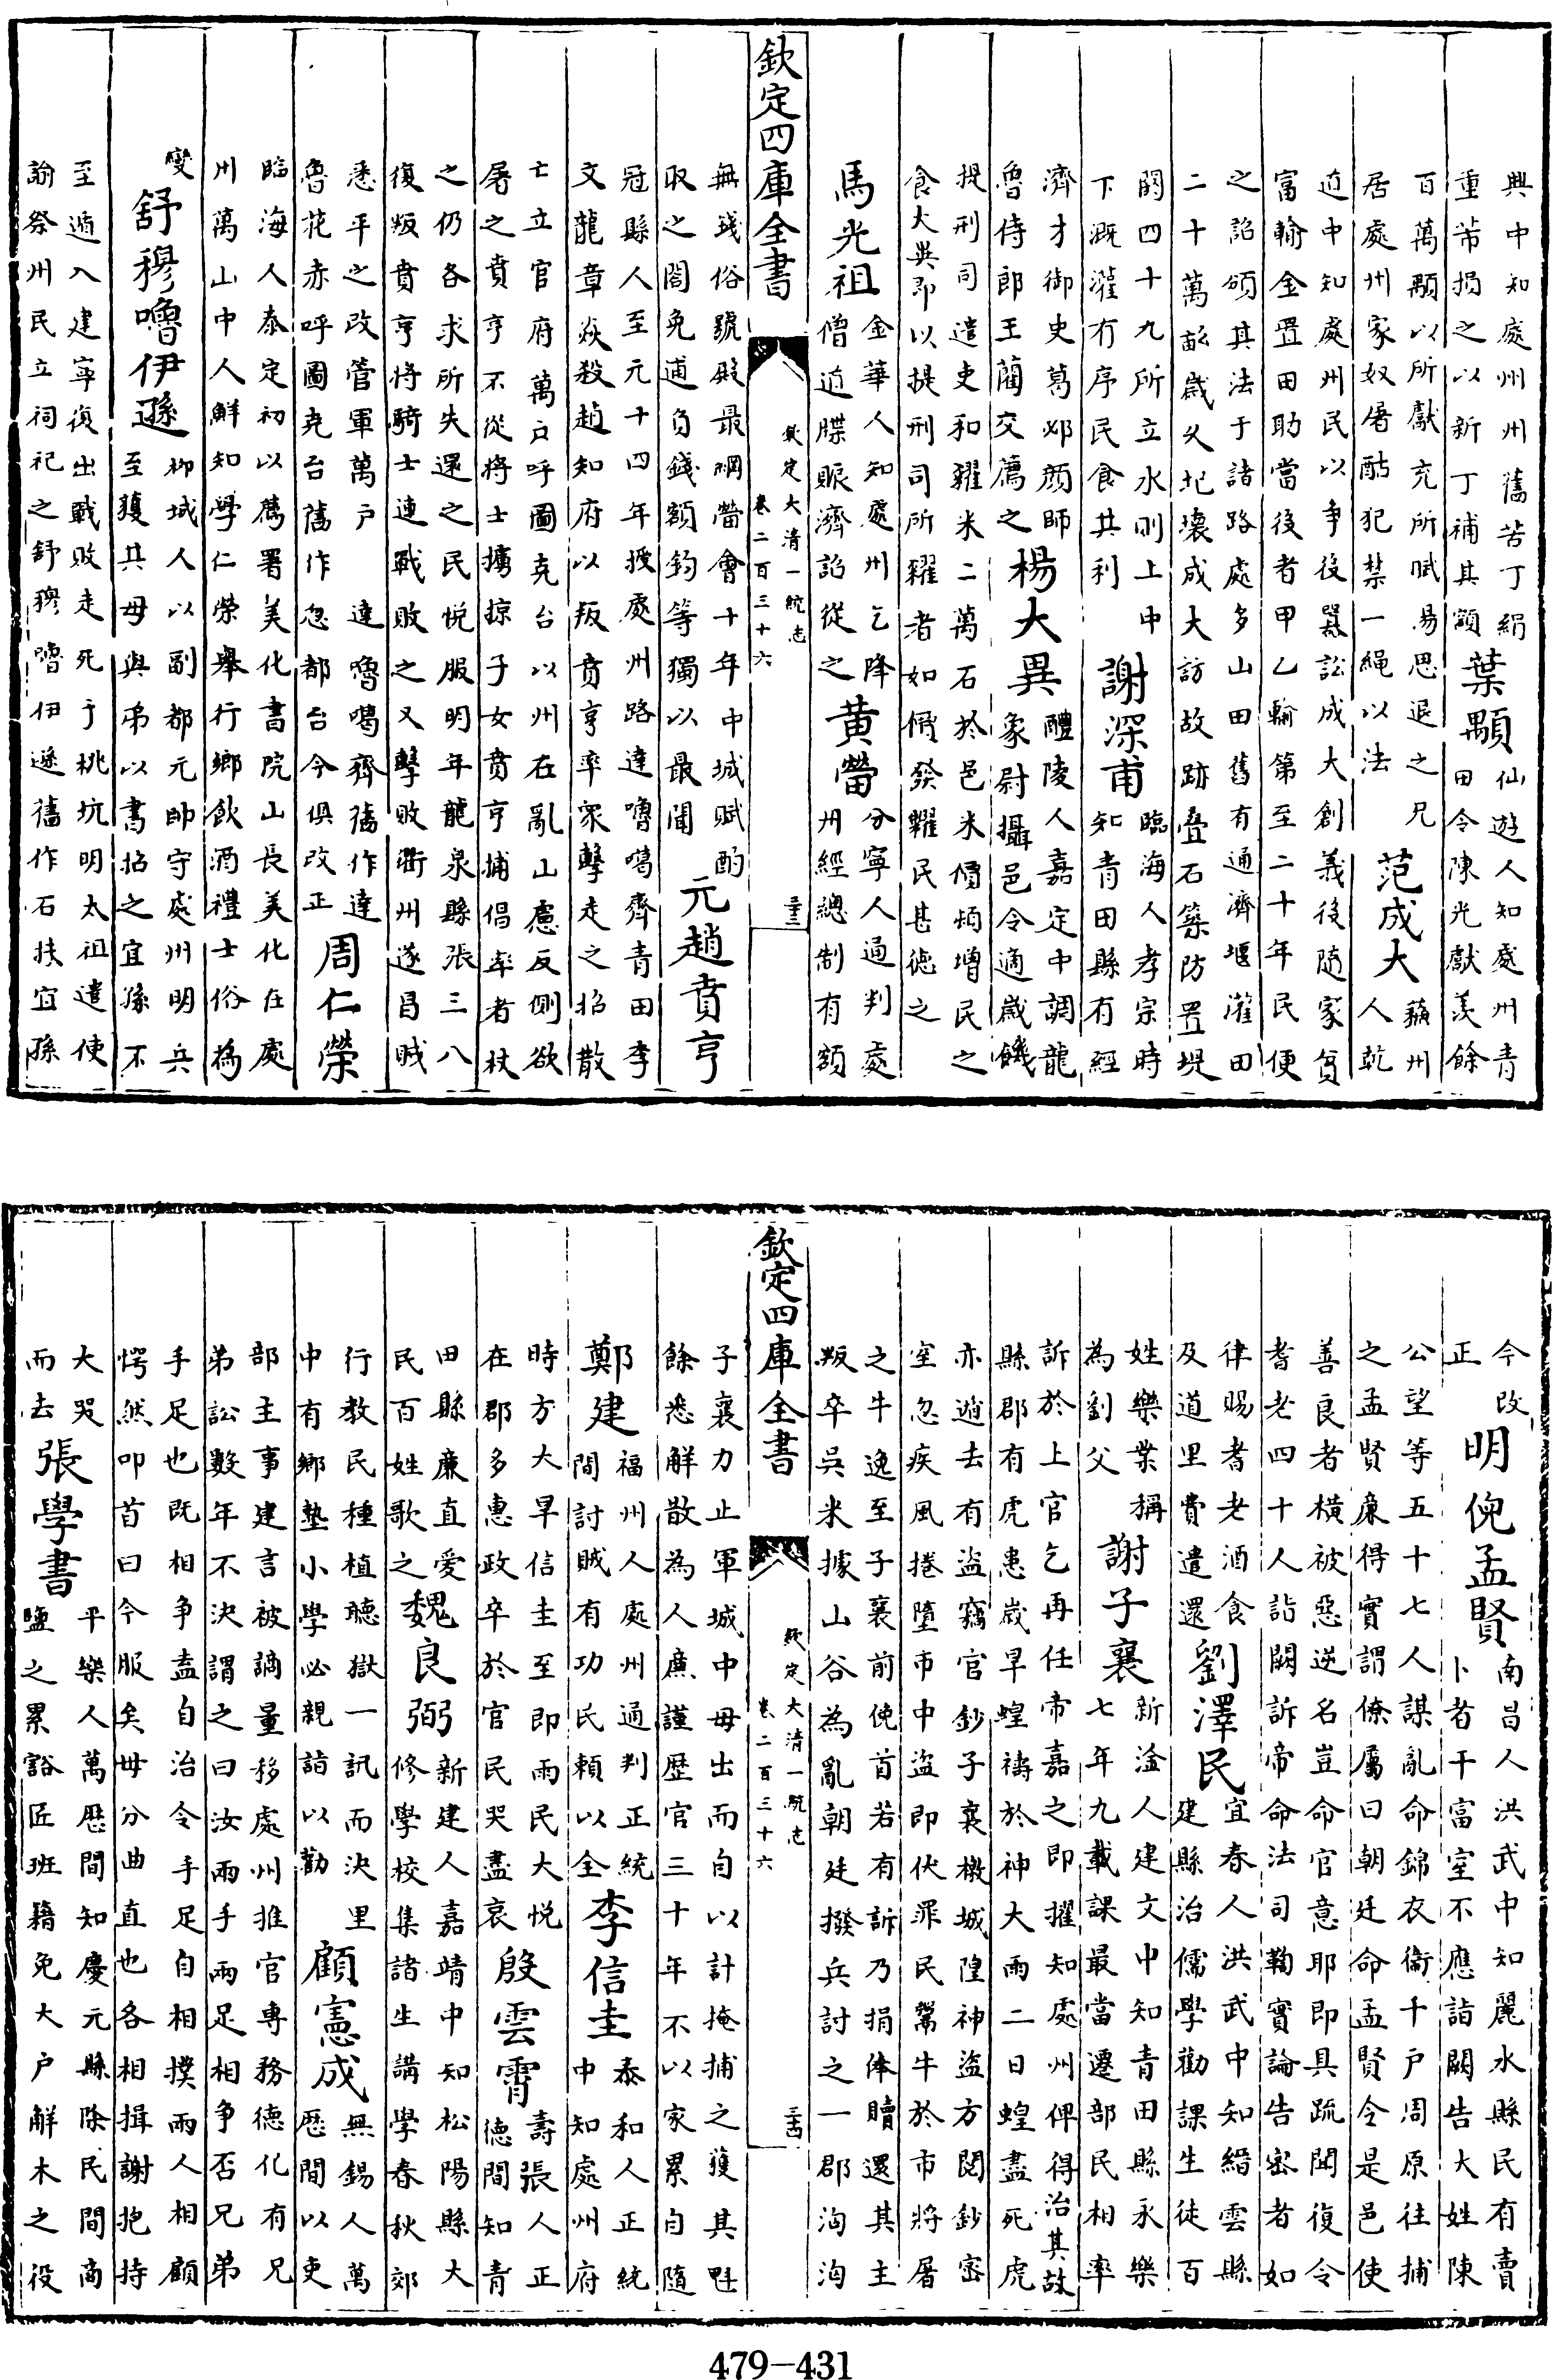 興中知處州州舊苦丁絹
重常損之以新丁補其額
葉顒
仙遊人知處州青
田令陳光獻羨餘
百萬顒以所獻充所賦易思退之兄
居處州家奴屠酤犯禁一繩以法
范成大
蘇州
人乾
道中知處州民以爭役嚚訟成大創義役隨家貧
富輸金置田助當役者甲乙輪第至二十年民便
之詔頒其法于諸路處多山田舊有通濟堰灌田
二十萬畝歲久圯壞成大訪故跡疊石築防置堤
閘四十九所立水則上中
下溉灌有序民食其利
謝深甫
臨海人孝宗時
知青田縣有經
濟才御史葛邲顔師
魯侍郎王藺交薦之
楊大異
醴陵人嘉定中調龍
泉尉攝邑令適歲饑
提刑司遣吏和糴米二萬石於邑米價煩增民乏
食大異即以提刑司所糴者如價發糶民甚德之
馬光祖
金華人知處州乞降
僧道牒賑濟詔從之
黄㽦
分寧人通判處
州經總制有額
欽定四庫全書
欽定大清一統志
卷二百三十六
三十三
無錢俗號殿最綱㽦會十年中城賦酌
取之閣免逋負錢額鈞等獨以最聞
元趙賁亨
冠縣人至元十四年授處州路達嚕噶齊青田季
文龍章焱殺趙知府以叛賁亨率衆擊走之招散
亡立官府萬户呼圖克台以州在亂山慮反側欲
屠之賁亨不從將士擄掠子女賁亨捕倡率者杖
之仍各求所失還之民悦服明年龍泉縣張三八
復叛賁亨將騎士連戰敗之又擊敗衢州遂昌賊
悉平之改管軍萬户
達嚕噶齊舊作達
魯花赤呼圖克台舊作忽都台今俱改正
周仁榮
臨海人泰定初以薦署美化書院山長美化在處
州萬山中人鮮知學仁榮舉行鄉飲酒禮士俗為
變
舒穆嚕伊遜
柳城人以副都元帥守處州明兵
至獲其母與弟以書招之宜孫不
至遁入建寧復出戰敗走死于桃坑明太祖遣使
諭祭州民立祠祀之舒穆嚕伊遜舊作石抹宜孫
今改
正
明倪孟賢
南昌人洪武中知麗水縣民有賣
卜者干富室不應詣闕告大姓陳
公望等五十七人謀亂命錦衣衛千户周原往捕
之孟賢廉得實謂僚屬曰朝廷命孟賢令是邑使
善良者橫被惡逆名豈命官意耶即具疏聞復令
耆老四十人詣闕訴帝命法司鞫實論告密者如
律賜耆老酒食
及道里費遣還
劉澤民
宜春人洪武中知縉雲縣
建縣治儒學勸課生徒百
姓樂業稱
為劉父
謝子襄
新淦人建文中知青田縣永樂
七年九載課最當遷部民相率
訴於上官乞再任帝嘉之即擢知處州俾得治其故
縣郡有虎患歲旱蝗禱於神大雨二日蝗盡死虎
亦遁去有盜竊官鈔子襄檄城隍神盜方閱鈔密
室忽疾風捲墮市中盜即伏罪民鬻牛於市將屠
之牛逸至子襄前俛首若有訴乃捐俸贖還其主
叛卒吳米據山谷為亂朝廷撥兵討之一郡洶洶
欽定四庫全書
欽定大清一統志
卷二百三十六
三十四
子襄力止軍城中毋出而自以計掩捕之獲其魁
餘悉解散為人廉謹歷官三十年不以家累自隨
鄭建
福州人處州通判正統
間討賊有功民賴以全
李信圭
泰和人正統
中知處州府
時方大旱信圭至即雨民大悦
在郡多惠政卒於官民哭盡哀
殷雲霄
壽張人正
德間知青
田縣廉直愛
民百姓歌之
魏良弼
新建人嘉靖中知松陽縣大
修學校集諸生講學春秋郊
行教民種植聽獄一訊而決里
中有鄉塾小學必親詣以勸
顧憲成
無錫人萬
歷間以吏
部主事建言被謫量移處州推官專務德化有兄
弟訟數年不決謂之曰汝兩手兩足相争否兄弟
手足也既相争盍自治令手足自相撲兩人相顧
愕然叩首曰今服矣毋分曲直也各相揖謝抱持
大哭
而去
張學書
平樂人萬歷間知慶元縣除民間商
鹽之累豁匠班籍免大户解木之役
479-431